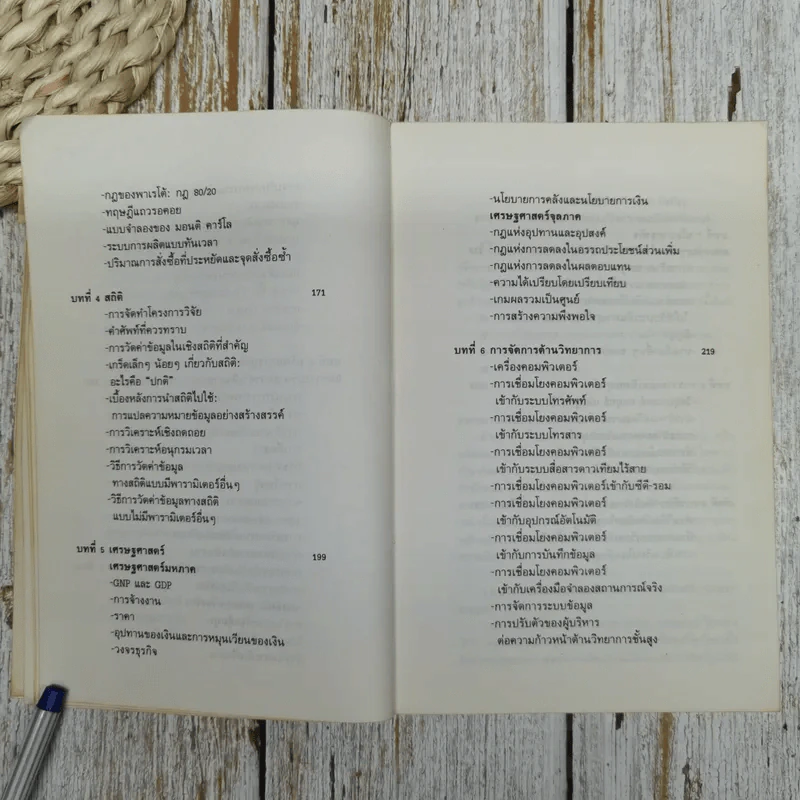 -กฎของพาเรโต้: กฎ 80/20
-ทฤษฎีแถวรอคอย
-แบบจำลองของ มอนติ คาร์โล
-ระบบการผลิตแบบทันเวลา
-ปริมาณการสั่งซื้อที่ประหยัดและจุดสั่งซื้อซ้ำ
บทที่ 4 สถิติ 171
-การจัดทำโครงการวิจัย
-คำศัพท์ที่ควรทราบ
-การวัดค่าข้อมูลในเชิงสถิติที่สำคัญ
-เกร็ดเล็กๆ น้อยๆ เกี่ยวกับสถิติ:
อะไรคือ "ปกติ"
-เบื้องหลังการนำสถิติไปใช้:
การแปลความหมายข้อมูลอย่างสร้างสรรค์
-การวิเคราะห์เชิงถดถอย
-การวิเคราะห์อนุกรมเวลา
-วิธีการวัดค่าข้อมูล
ทางสถิติแบบมีพารามิเตอร์อื่นๆ
-วิธีการวัดค่าข้อมูลทางสถิติ
แบบไม่มีพารามิเตอร์อื่นๆ
บทที่ 5 เศรษฐศาสตร์ 199
เศรษฐศาสตร์มหภาค
-GNP และ GDP
-การจ้างงาน
-ราคา
-อุปทานของเงินและการหมุนเวียนของเงิน
-วงจรธุรกิจ
-นโยบายการคลังและนโยบายการเงิน
เศรษฐศาสตร์จุลภาค
-กฎแห่งอุปทานและอุปสงค์
-กฎแห่งการลดลงในอรรถประโยชน์ส่วนเพิ่ม
-กฎแห่งการลดลงในผลตอบแทน
-ความได้เปรียบโดยเปรียบเทียบ
-เกมผลรวมเป็นศูนย์
-การสร้างความพึงพอใจ
บทที่ 6 การจัดการด้านวิทยาการ 219
-เครื่องคอมพิวเตอร์
-การเชื่อมโยงคอมพิวเตอร์
เข้ากับระบบโทรศัพท์
-การเชื่อมโยงคอมพิวเตอร์
เข้ากับระบบโทรสาร
-การเชื่อมโยงคอมพิวเตอร์
เข้ากับระบบสื่อสารดาวเทียมไร้สาย
-การเชื่อมโยงคอมพิวเตอร์เข้ากับซีดี-รอม
-การเชื่อมโยงคอมพิวเตอร์
เข้ากับอุปกรณ์อัตโนมัติ
-การเชื่อมโยงคอมพิวเตอร์
เข้ากับการบันทึกข้อมูล
-การเชื่อมโยงคอมพิวเตอร์
เข้ากับเครื่องมือจำลองสถานการณ์จริง
-การจัดการระบบข้อมูล
-การปรับตัวของผู้บริหาร
ต่อความก้าวหน้าด้านวิทยาการชั้นสูง